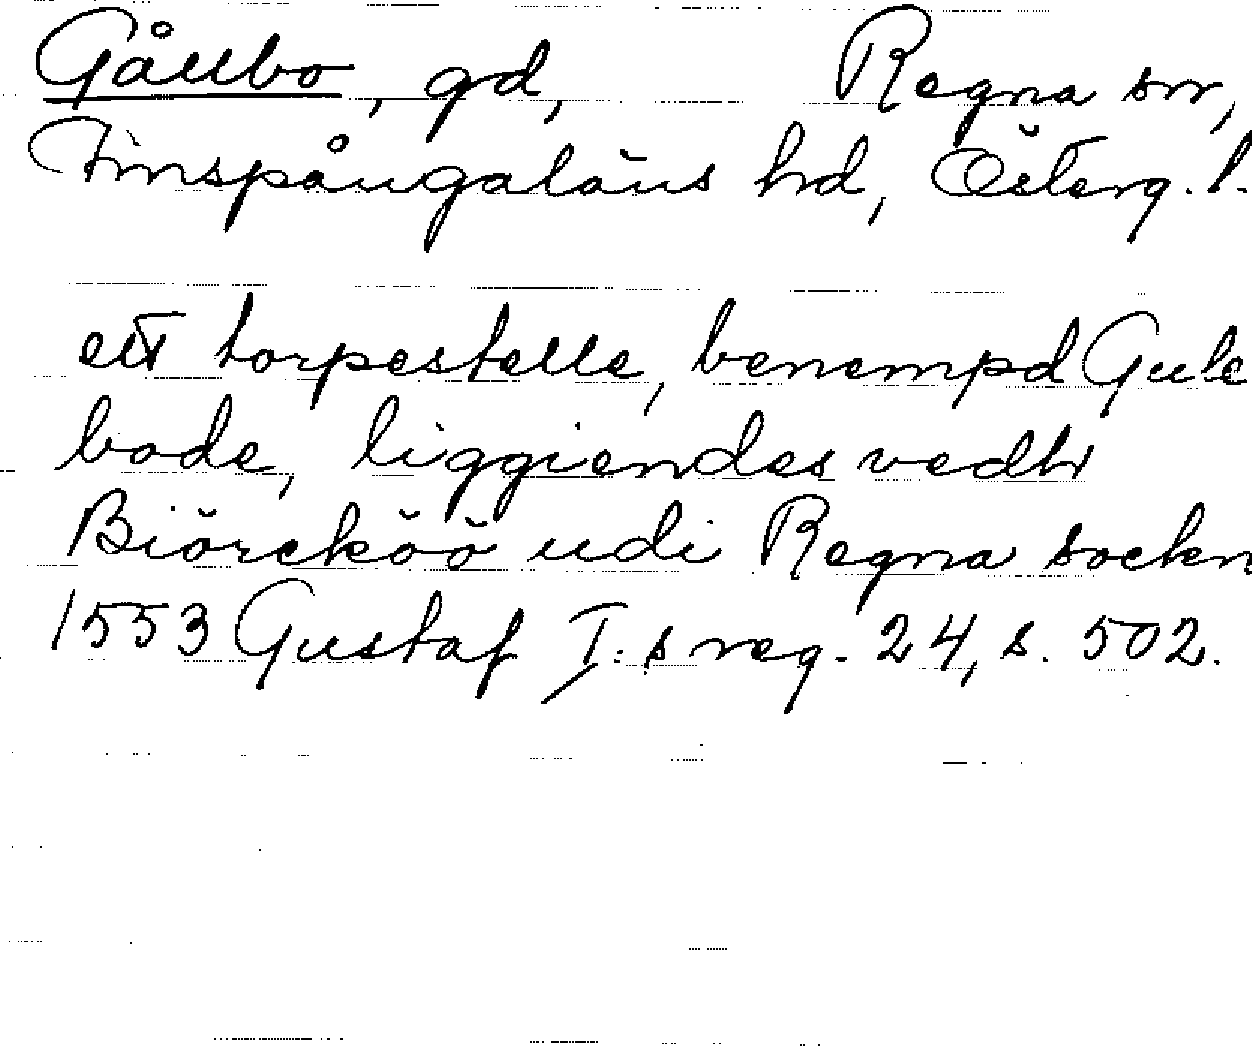 Gålbo, gd, Regna sn,
Finspångaläns hd, Österg. l.
ett torpestelle, benempd Gule
bode, liggiendes vedh
Biörcköö udi Regna sockn
1553 Gustaf I:s reg. 24, s. 502.